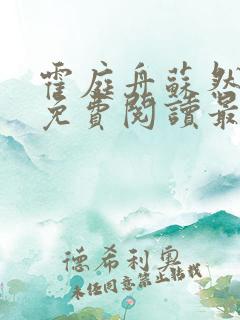 霍庭舟蘇然
免費閱讀最
德希利奧
未經同意禁止轉載